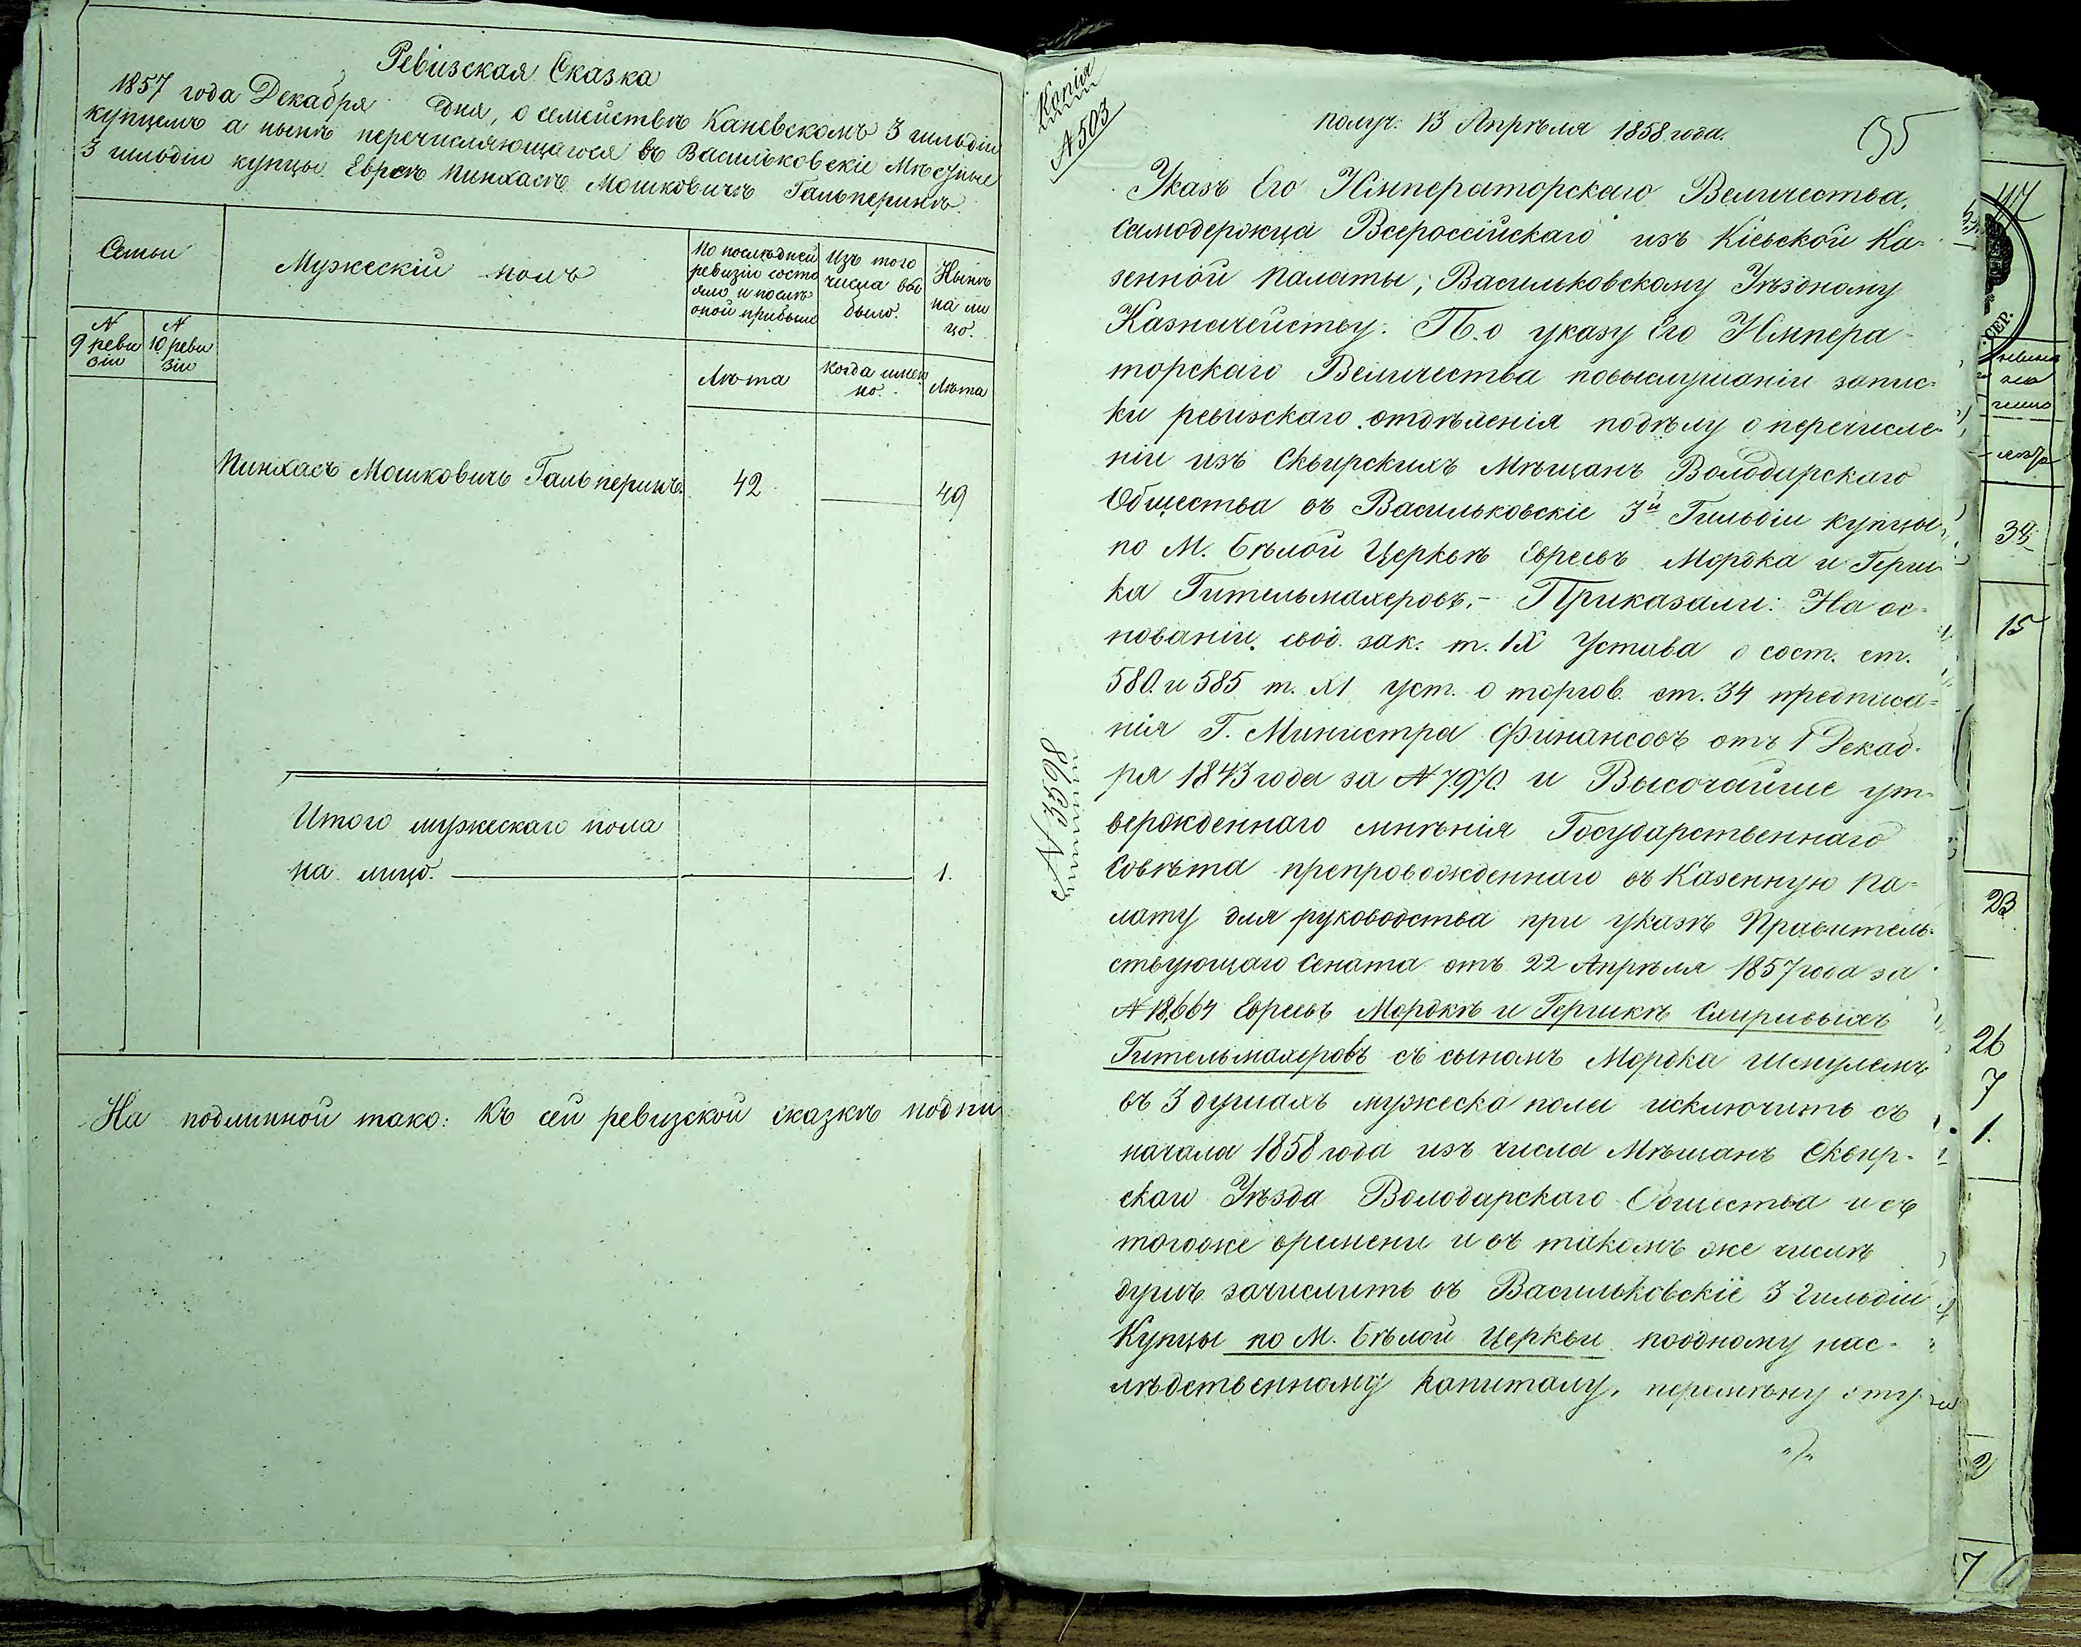 Ревизская Сказка
1857 года Декабря дня, о семействѣ Каневскомъ 3 гильдіи
купцемъ а нынѣ перечисляющагося въ Васильковскіе Мѣстные
3 гильдіи купцы Еврей Пинхасъ Мошковичъ Гальперинъ
Семьи
Мужескій полъ
По послѣдней
ревизіи состо
яло и послѣ
оной прибыло
Изъ того
числа вы
было.
Нынѣ
на ли
цо.
N
9 реви
зіи
N
10 реви
зіи
Лѣта
Когда имен
но.
Лѣта
Пинхасъ Мошковичъ Гальперинъ. 42 49
Итого мужескаго пола
на лицо. 1.
На подлинной тако: Къ сей ревизской сказкѣ подпи
Копія
N 503
получ. 13 Апрѣля 1858 года.
95
Указъ Его Императорскаго Величества,
Самодержца Всероссійскаго изъ Кіевской Ка-
зенной Палаты, Васильковскому Уѣздному
Казначейству. По указу Его Импера-
торскаго Величества повыслушаніи запис-
ки ревизскаго отдѣленія подѣлу о перечисле-
ніи изъ Сквирскихъ Мѣщанъ Володарскаго
Общества въ Васильковскіе 3й Гильдіи купцы
по М. Бѣлой Церквѣ Евреевъ Мордка и Герш-
ка Гительмахеровъ.- Приказали: На ос-
нованіи свод. зак. т. IX Устава о сост. ст.
580. и 585 т. XI уст. о торгов. ст. 34 предписа-
нія Г. Министра Финансовъ отъ 1 Декаб-
ря 1843 года за N 7970. и Высочайше ут-
вержденнаго мнѣнія Государственнаго
Совѣта препровожденнаго въ Казенную Па-
лату для руководства при указѣ Правитель-
ствующаго Сената отъ 22 Апрѣля 1857 года за
N 18,664 Евреевъ Мордкѣ и Гершкѣ
Гительмахеровъ съ сыномъ Мордка Шмулемъ
въ 3 душахъ мужеска пола исключить съ
начала 1858 года изъ числа Мѣщанъ Сквир-
скаго Уѣзда Володарскаго Общества и съ
тогоже времени и въ такомъ же числѣ
душъ зачислить въ Васильковскіе 3 гильдіи
Купцы по М. Бѣлой Церкви поодному нас-
лѣдственному капиталу, перемѣну эту
N 5598
34
15
23
26
7
1.
2
7